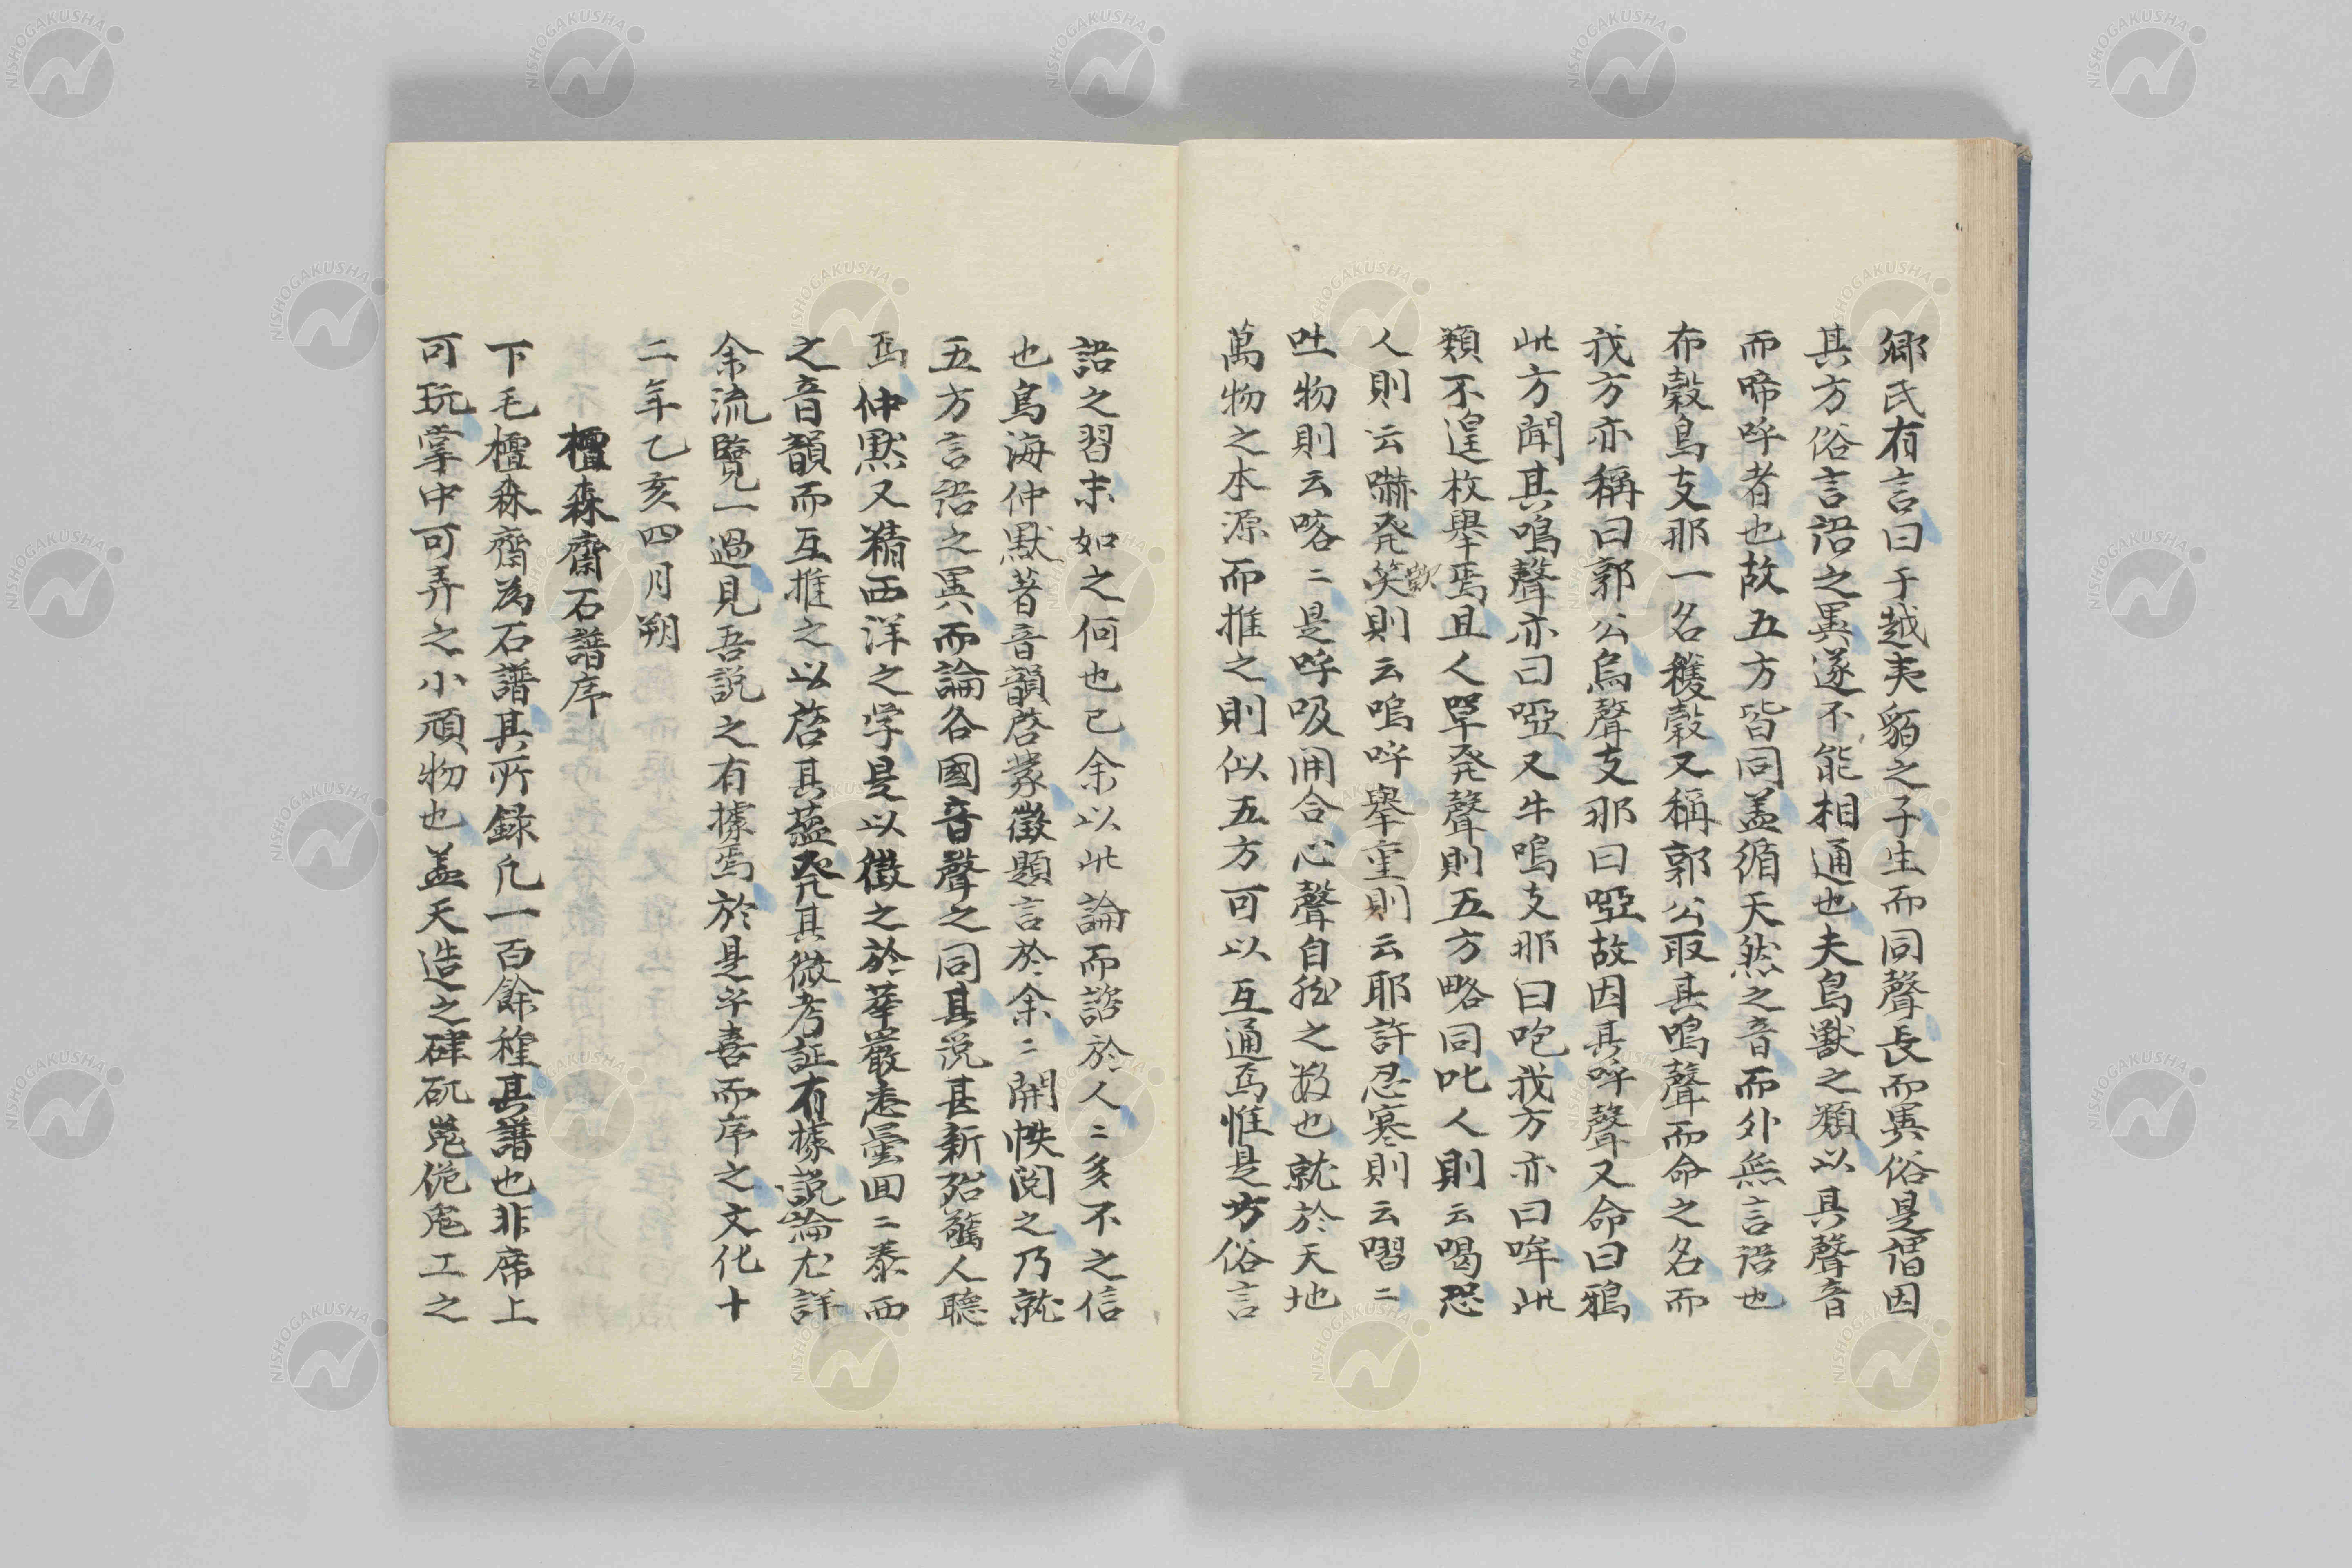 郷氏有言曰于越夷貊之子生而同聲長而異俗是謂因
其方俗言語之異遂不能相通也夫鳥獣之類以其聲音
而啼呼者也故五方皆同盖循天然之音而外無言語也
布穀鳥支那一名穫穀又稱郭公取其鳴聲而命之名而
我方亦稱曰郭公烏聲支那曰啞故因其呼聲又命曰鴉
此方聞其鳴聲亦曰啞又牛鳴支那曰吃我方亦曰哞此
類不遑枚舉焉且人單発聲則五方略同叱人則云喝恐
人則云嚇発笑歟則云嗚呼舉重則云耶許忍寒則云嚪二
吐物則云喀二是呼吸開合心聲自然之数也就於天地
萬物之本源而推之則似五方可以互通焉惟是方俗言
語之習末如之何也已余以此論而諮於人二多不之信
也烏海仲默著音韻啓蒙徴題言於余二開帙閲之乃就
五方言語之異而論各國音聲之同其説甚新殆驚人聴
焉仲默又精西洋之学是以徴之於華嚴悉曇囬二泰西
之音韻而互推之以啓其蘊発其微考証有據説論尤詳
余流覽一過見吾説之有據焉於是乎喜而序之文化十
二年乙亥四月朔
檀森齋石譜序
下毛檀森齋為石譜其所録凢一百餘種其譜也非席上
可玩掌中可弄之小頑物也盖天造之硉矹嵬傀鬼工之
NISHOGAKUSHA